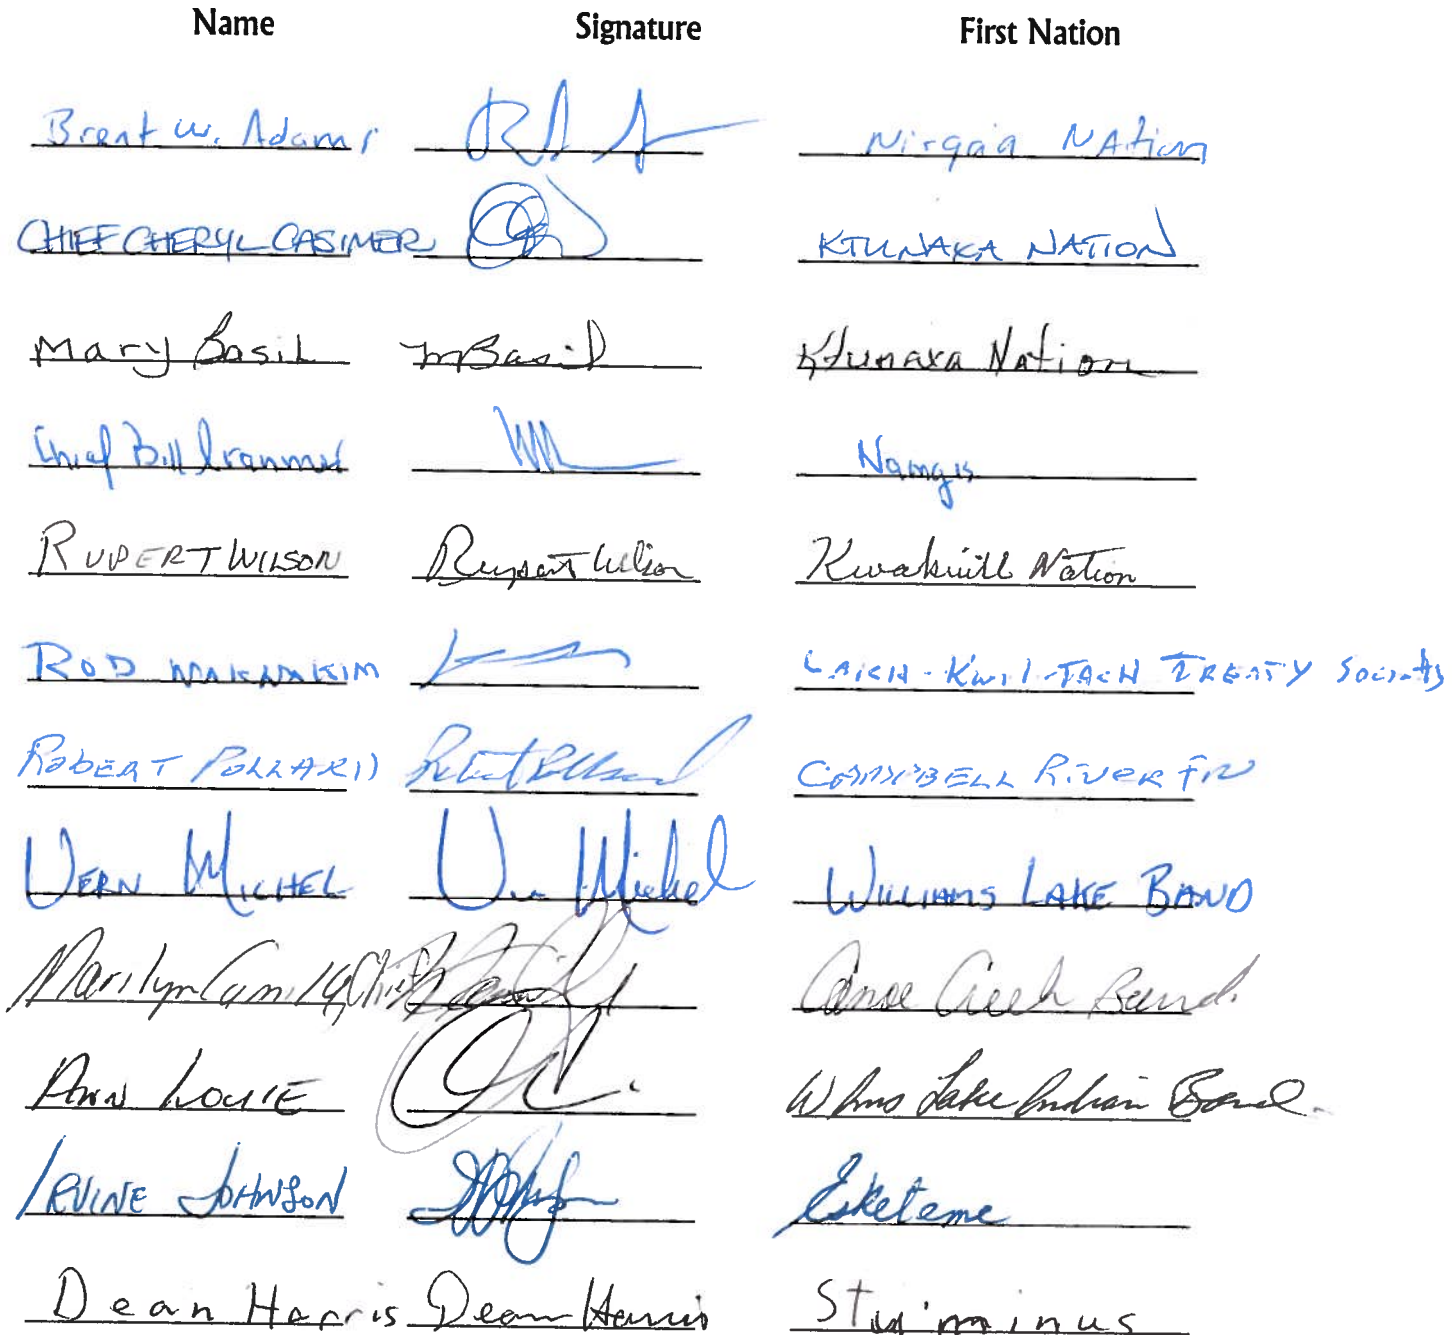 Name Signature First Nation
Brent W. Adams Nisgaa NAtion
CHIEF CHERYL CASIMER KTUNAXA NATION
Mary Basil mBasil Ktunaxa Nation
Chief Bill Namgis
RUPERT WILSON Rupert Wilson Kwakiutl Nation
ROD NAKNAKIM LAICH-KwIl-TACH TREATY Society
ROBERT POLLARD Robert Pollard CAMPBELL RIVER FN
VERN MICHEL Vern Michel WILLIAMS LAKE BAND
Marilyn Camille, Chief Canoe Creek Band.
ANN LOUIE Wlms Lake Indian Band.
IRVINE JOHNSON Esketemc
Dean Harris Dean Harris Stu'minus